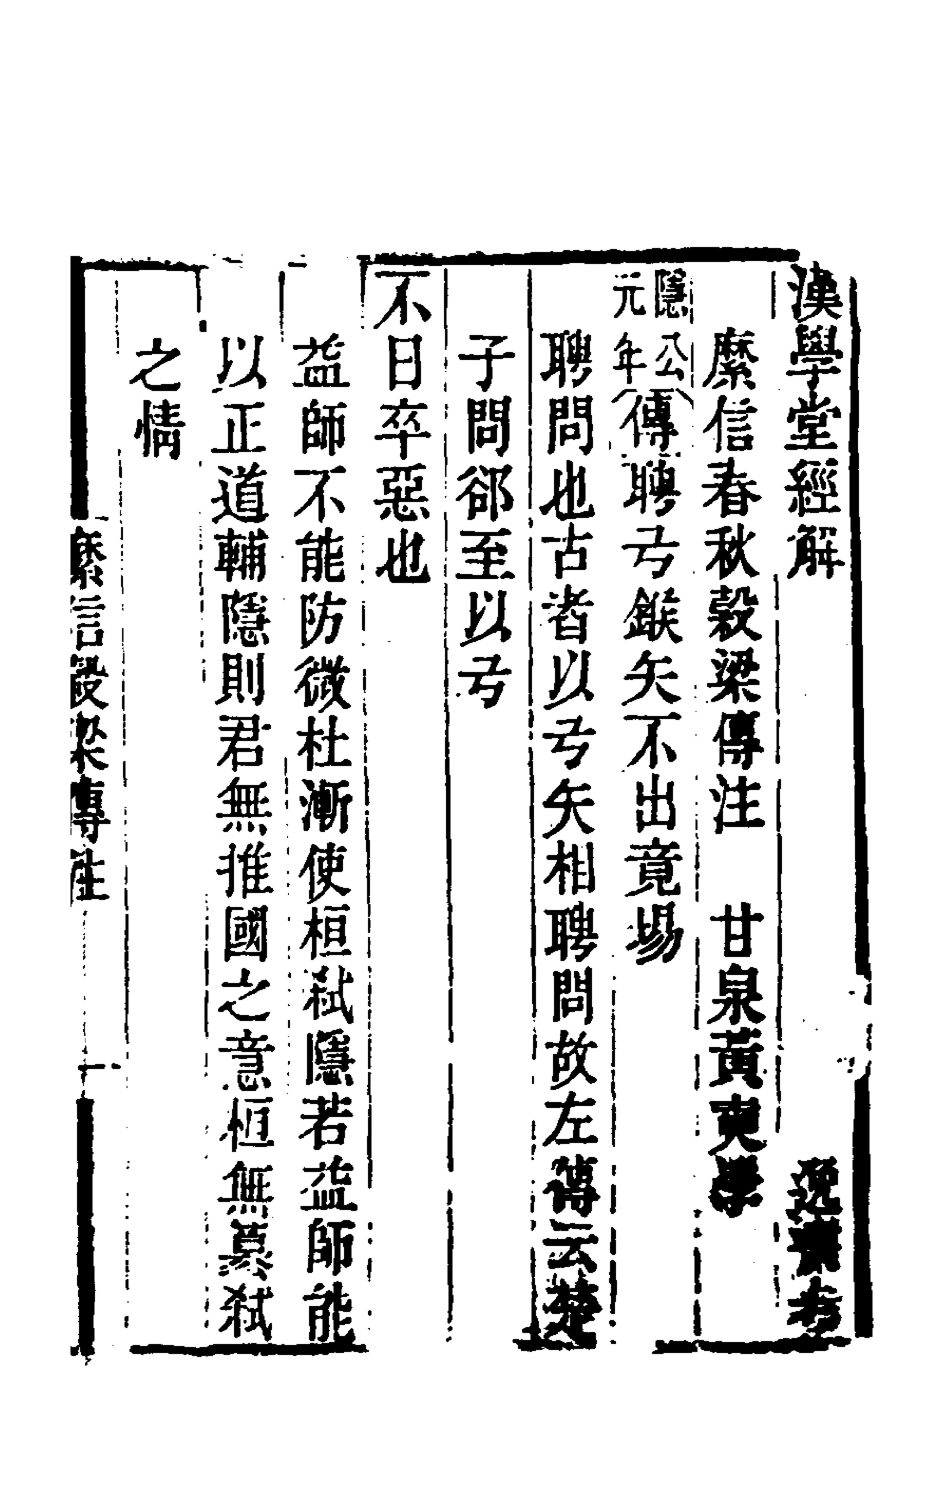 漢學堂經解　逸書考
糜信春秋穀梁傳注　甘泉黃奭學
隱公
元年
傳聘弓鍭矢不出竟埸
聘問也古者以弓矢相聘問故左傳云楚
子問郤至以弓
不日卒惡也
益師不能防微杜漸使桓弒隱若益師能
以正道輔隱則君無推國之意桓無篡弒
之情
糜信穀梁傳注
一